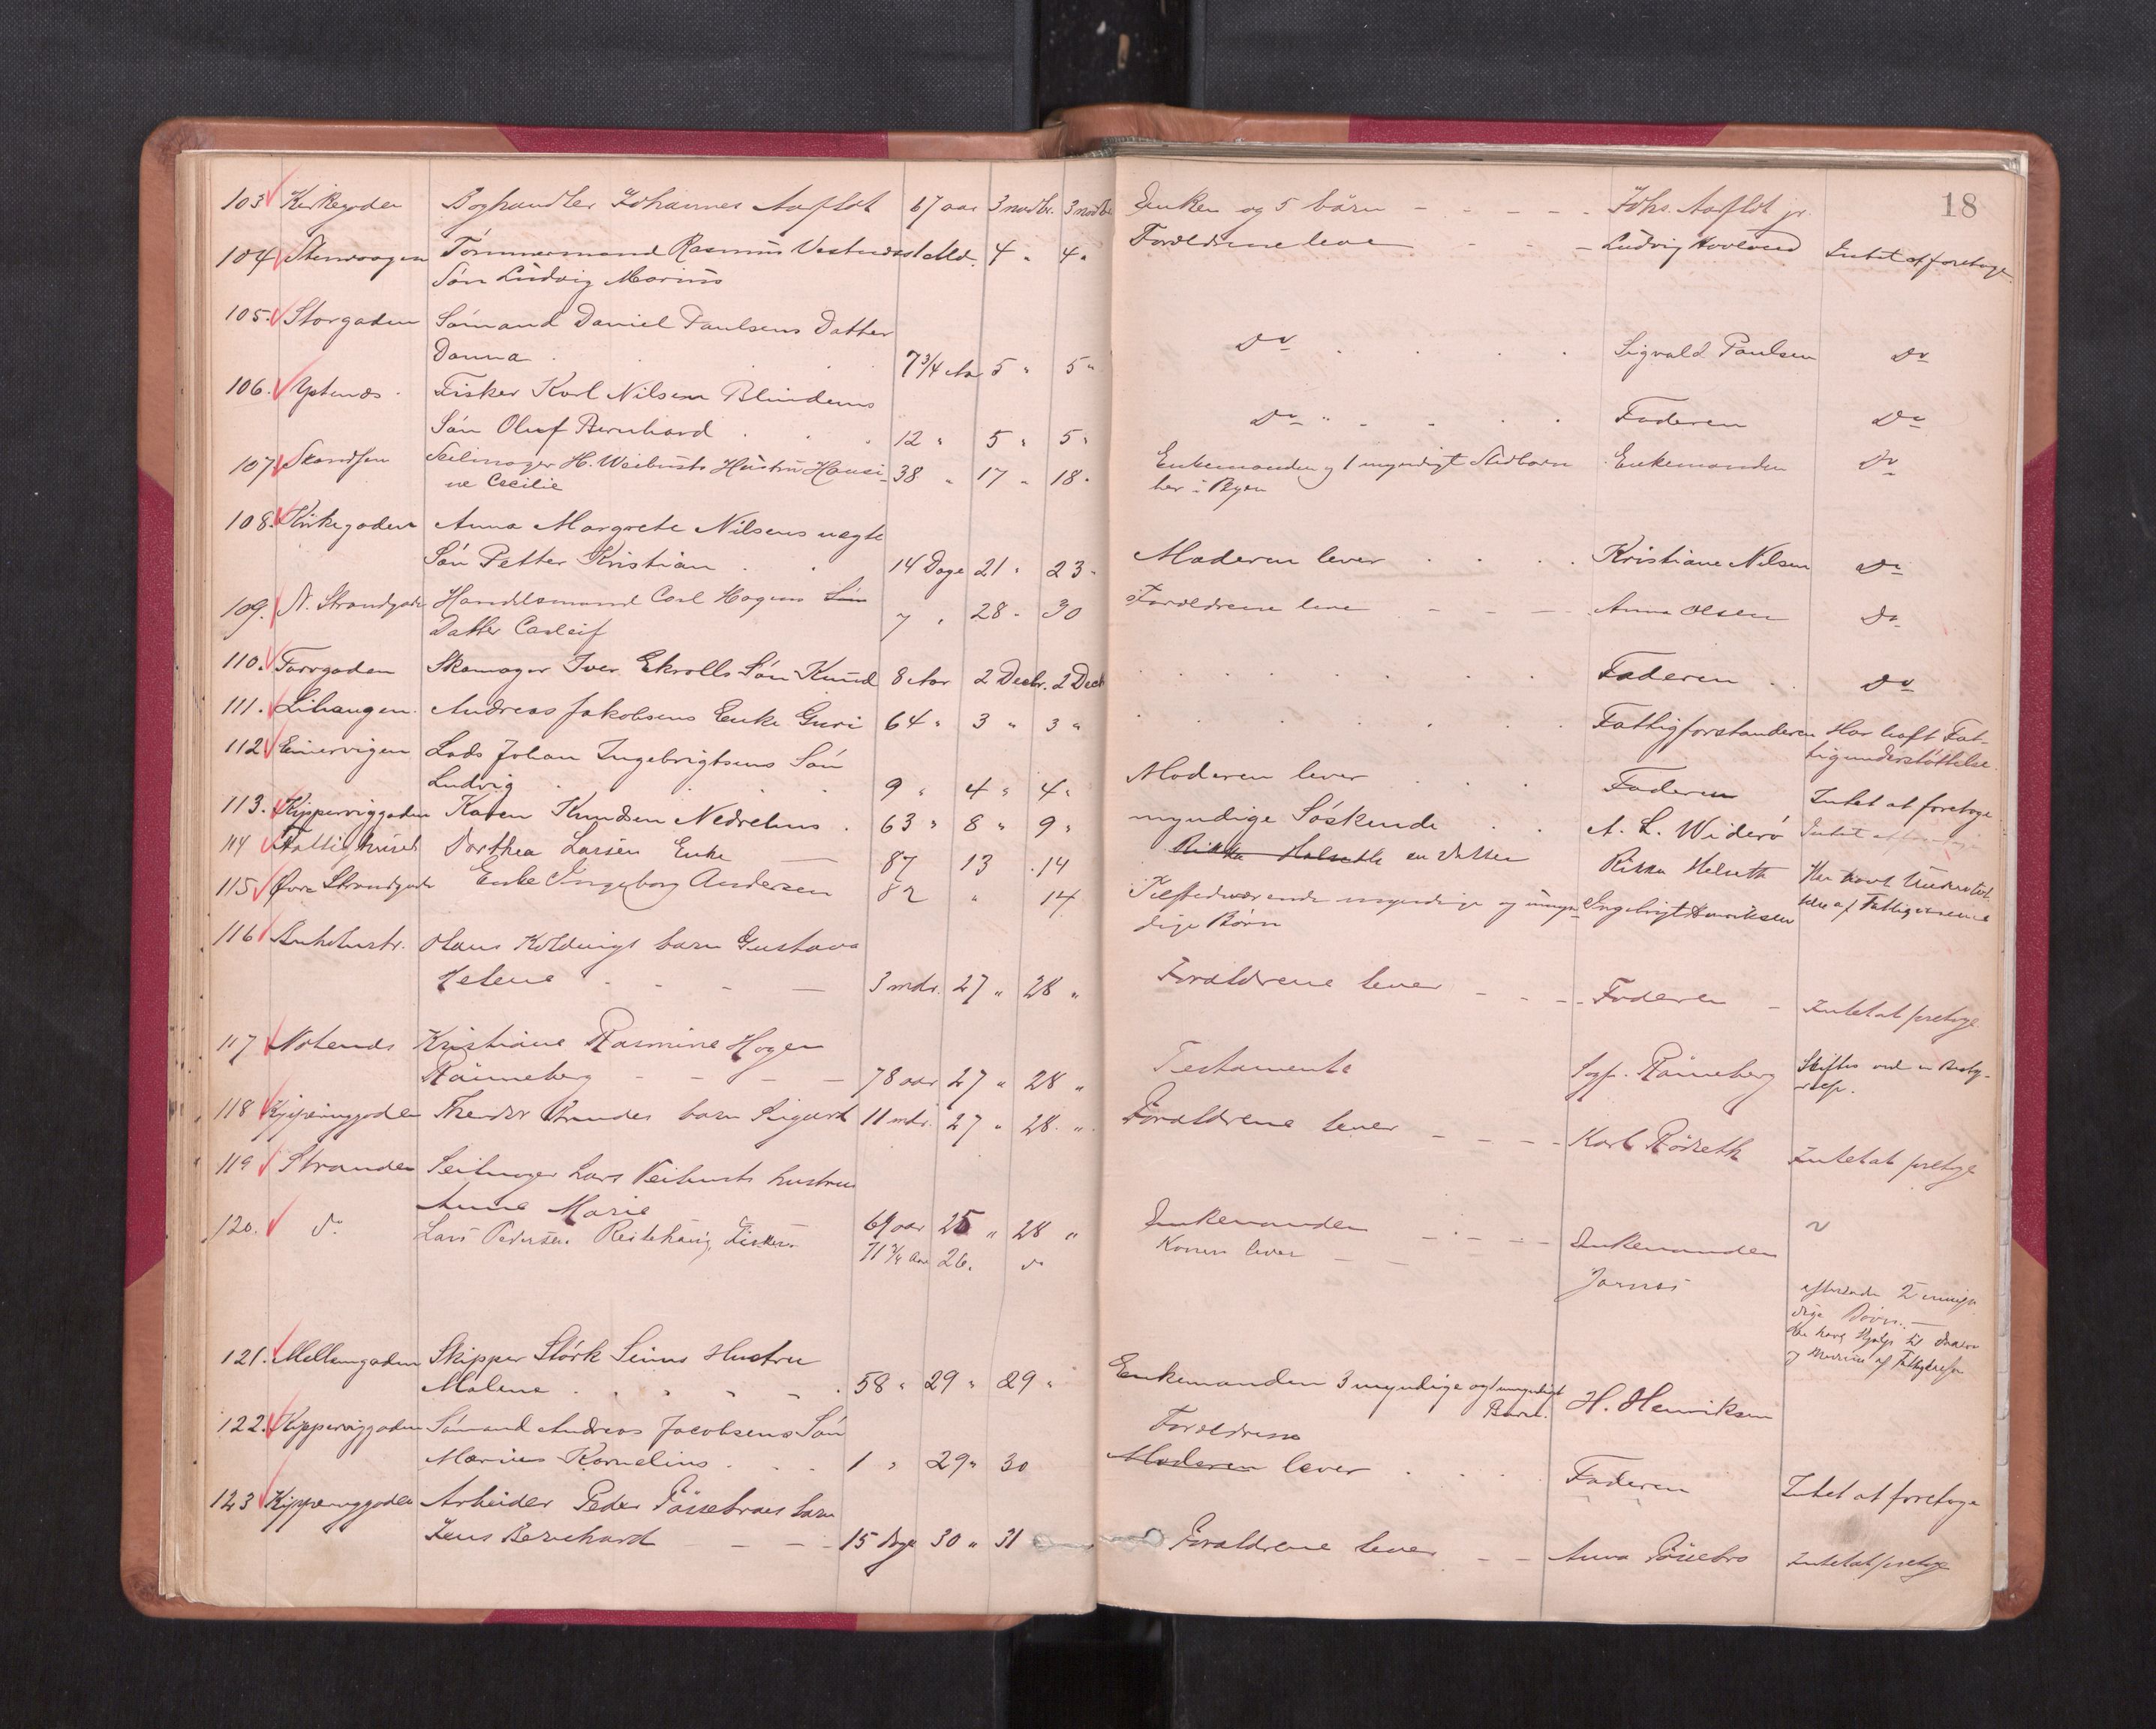 18
103 Kirkegaden Boghandler Johannes Aarflot 67 aar 3 novbr. 3 novbr. Enken og 5 børn - - - - - Johs. Aarflot jr.
104 Stenvaagen Tømmermand Rasmus 4 " 4 " Forældrene leve - - - Ludvig Intet at foretage
Søn Ludvig Marius
105. Storgaden Sømand Daniel Paulsens Datter
Danna 7 3/4 Aar 5 " 5 " Do Sigvald Paulsen Do
106. Fisker Karl Nilsen Blindems
Søn Oluf Bernhard 12 " 5 " 5 " Do Faderen Do
107 Skandsen Seilmager H. Weibusts Hustru Hansi- 38 " 17 " 18 " Enkemanden og 1 myndigt Stedbarn Enkemanden Do
ne Cecilie her i Byen
108. Kirkegaden Anna Margrete Nilsens uægte
Søn Petter Kristian 14 Dage 21 " 23 " Moderen lever Kristiane Nilsen Do
109. N. Strandgade Handelsmand Carl Hagens Søn 7 " 28 " 30 Forældrene leve - - - Anna Olsen Do
Datter Carleif
110. Torvgaden Skomager Iver Ekrolls Søn Knud 8 Aar 2 Decbr. 2 Decb Faderen Do
111. Lihaugen Andreas Jakobsens Enke Guri 64 " 3 " 3 " Fattigforstanderen Har havt Fat-
tigunderstøttelse.
112 Lods Johan Ingebrigtsens Søn
Ludvig 9 " 4 " 4 " Moderen lever Faderen Intet at foretage
113. Kipperviggaden Karen Knudsen Nedrelius 63 " 8 " 9 " myndige Søskende A. L. Widerø Intet at
114 Fattighuset Dorthea Larsen Enke 87 13 14 Rikka Helseth en datter Rikka Helseth Har havt Understøt
telse af Fattigvæsenet
115 Øvre Strandgade Enke Ingeborg Andersen 82 " 14 Tilstedeværende myndige og umyn- Ingebrigt Henriksen
dige Børn
116 Olaus barn Gustava
Helene 3 mdr. 27 " 28 " Forældrene lever - - - Faderen - Intet at foretage
117 Notenæs Kristiane Rasmine Hagen
Rønneberg - - - - 78 aar 27 " 28 " Testamente Rønneberg Skiftes ved
118 Kipperviggaden Theodor barn Sigurd 11 mdr. 27 " 28 " Forældrene lever - - - - Karl Rødseth Intet at foretage
119 Stranden Seilmager Lars Veibusts hustru
Anne Marie 69 aar 25 " 28 " Enkemanden - - - - Enkemanden
120. do Lars Pedersen Reitehaug, Fisker 71 3/4 Aar 26. do Konen lever - - Jarnes efterlader 2 umyn
dige Børn. -
Har havt Hjælp til
og Medicin af Fattigkassen
121. Mellemgaden Skipper Størk Hustru
Malene 58 " 29 " 29 " Enkemanden 3 myndige og 1 umyndigt H. Henriksen
Barn.
122. Kippervиggaden Sømand Andreas Jacobsens Søn Forældrene
Marius Kornelius 1 " 29 " 30 Moderen lever Faderen Intet at foretage
123 Kipperviggaden Arbeider Peder Fossebraas barn
Jens Bernhard - - - 15 dage 30 " 31 Forældrene lever - - Anna Intet at foretage